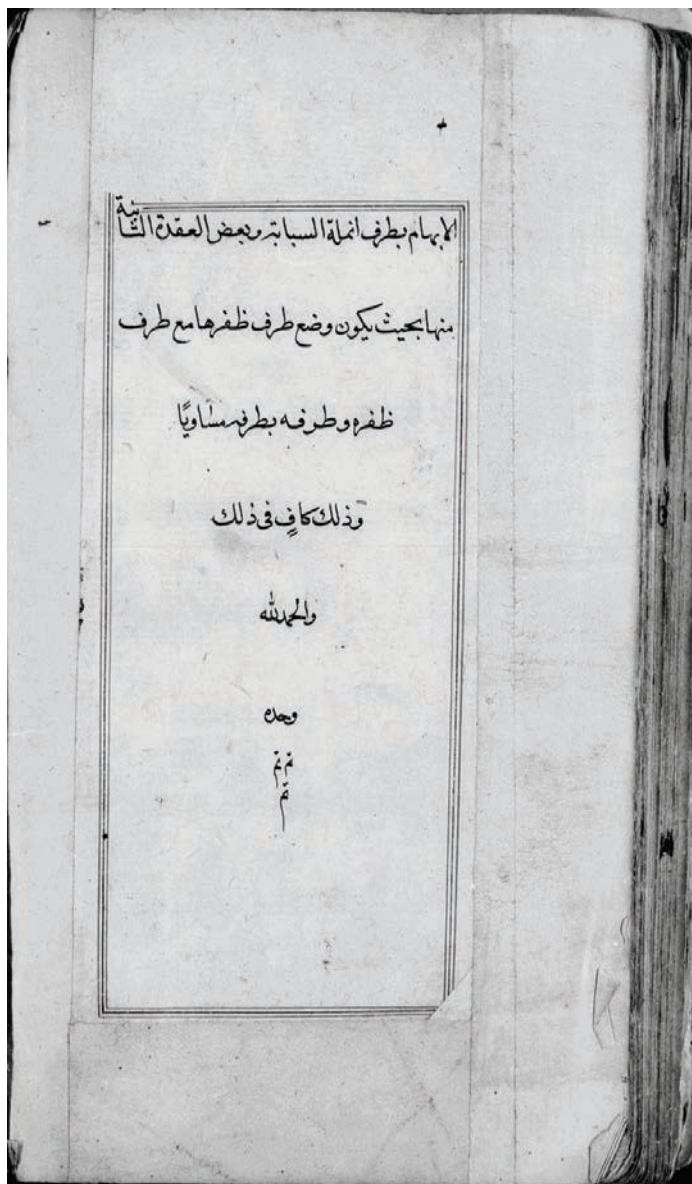 الابهام بطرف انملة السبابة وبعض العقدة الثانية
منها بحيث يكون وضع طرف ظفرها مع طرف
ظفره وطرفه بطرفه مساويًا
وذلك كافٍ فى ذلك
والحمد لله
وحده
تم تم
تم